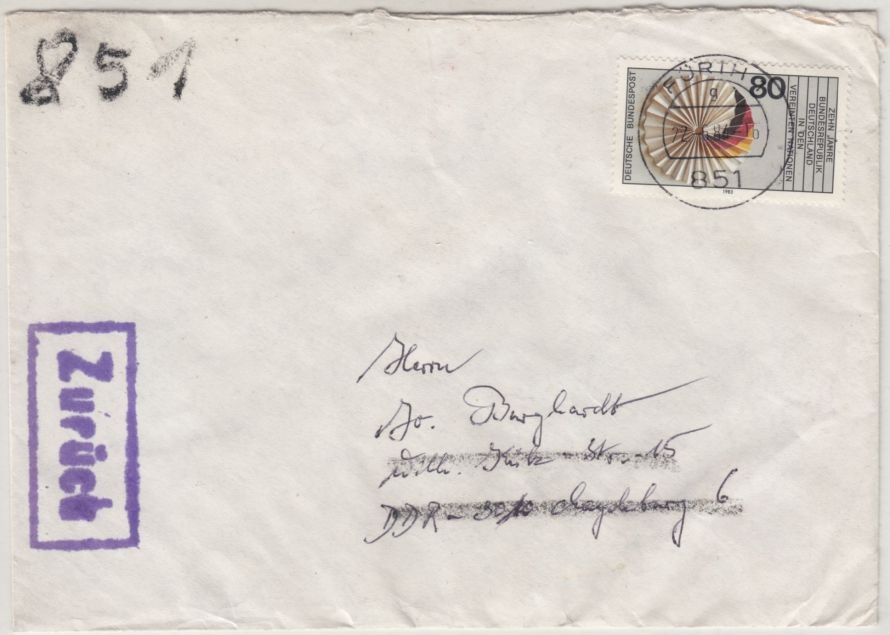 851
DEUTSCHE BUNDESPOST
80
ZEHN JAHRE
BUNDESREPUBLIK
DEUTSCHLAND
IN DEN
VEREINTEN NATIONEN
1983
FÜRTH
g
851
Zurück
Herrn
Jo. Burghardt
Wilh. Str. 15
DDR - Magdeburg 6